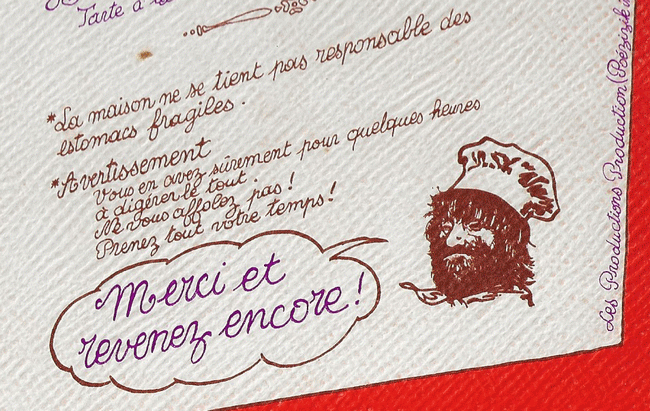 Tarte à la
*La maison ne se tient pas responsable des
estomacs fragiles.
*Avertissement
Vous en avez sûrement pour quelques heures
à digérer le tout.
Ne vous affolez pas!
Prenez tout votre temps!
Merci et
revenez encore!
Les Productions Production (Poézizik